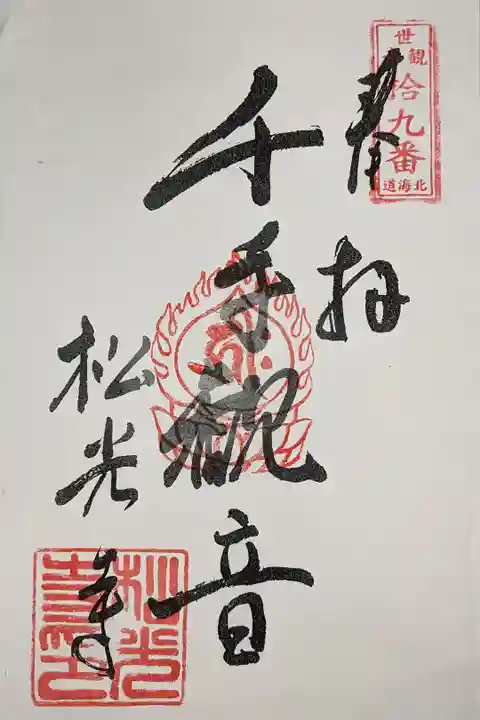 北海道
観世
拾九番
奉拝
千手観音
松光寺
松光寺